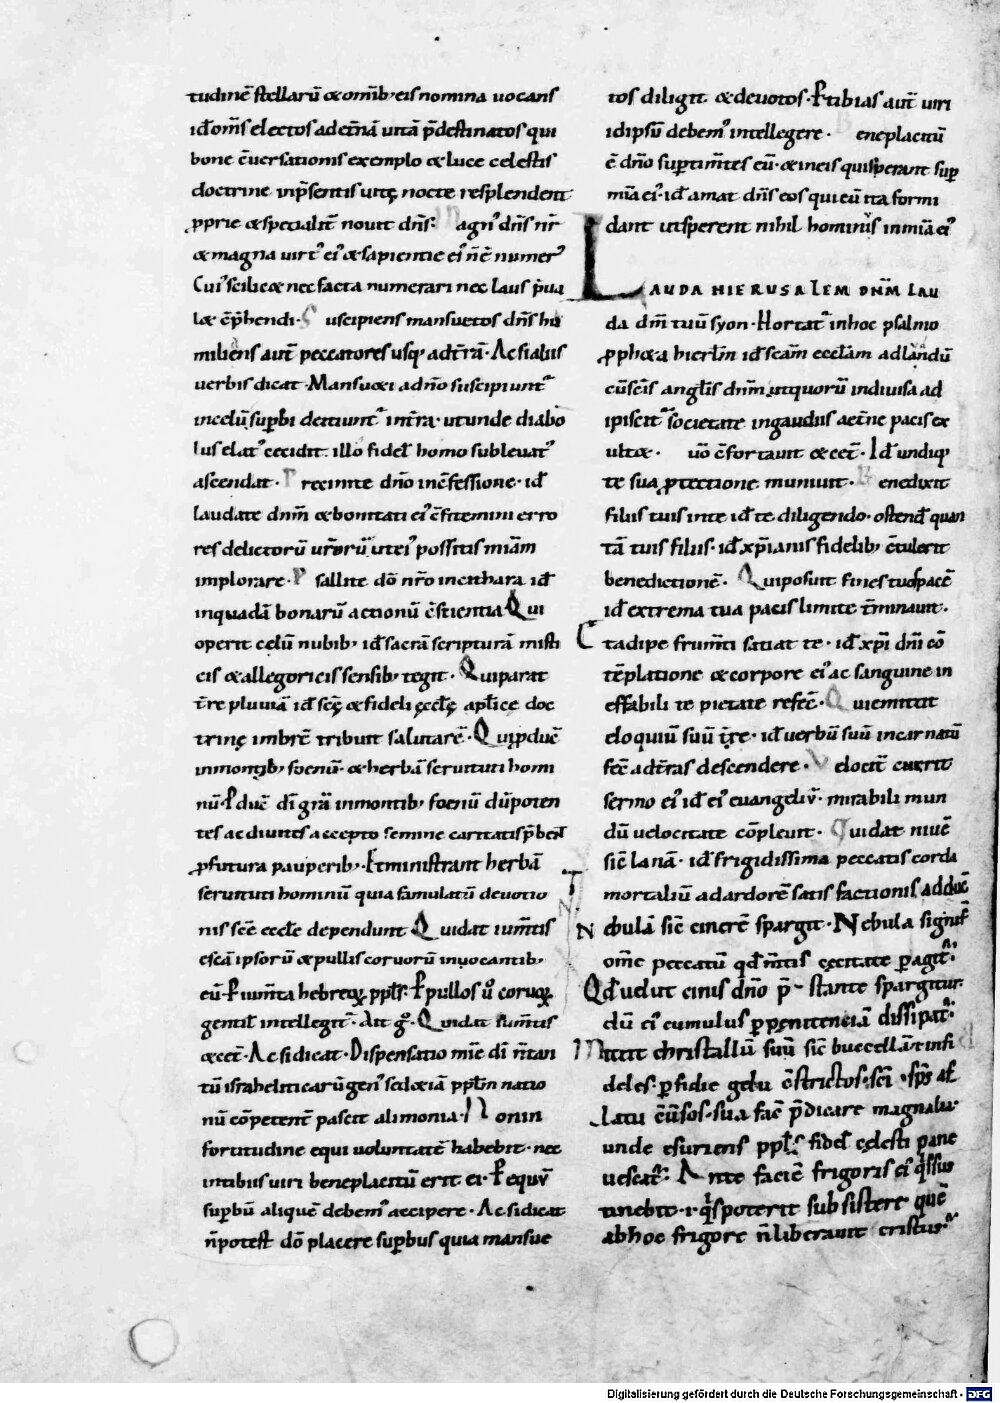 tudinē stellarū & omīb; eis nomina uocans
id ō̄ms electos ad et̄nā uitā p̄destinatos qui
bone c̄uersationis exemplo & luce celestis
doctrine inp̄sentis uitę nocte resplendent
ꝓprie & specialit̄ nouit dn̄s· Magn᾽ dn̄s nr̄
& magna uirt᾽ ei᾽ & sapientie ei᾽ n̄ ē numer᾽
Cui᾽ scilic& nec facta numerari nec laus p̄ua
l& c̄p̄hendi· Suscipiens mansuetos dn̄s hu
milians aut̄ peccatores usq; ad t̄rā· Ac si aliis
uerbis dicat· Mansueti a dn̄o suscipiunt᾽
in celū sup̄bi deiciunt᾽ int̄ra· ut unde diabo
lus elat᾽ cecidit. illo fidel̄ homo subleuat᾽
ascendat· Precinite dn̄o in c̄fessione· id̄
laudate dnm̄ & bonitati ei᾽ c̄fitemini erro
res delictorū ur̄orū ut ei᾽ possitis miām
implorare· Psallite dō nr̄o in cithara id̄
in quadā bonarū actionū c̄scientia Qui
operit celū nubib; id̄ sacrā scripturā misti
cis & allegoricis sensib; tegit· Qui parat
t̄re pluuiā id̄ scę̄ & fideli ęccl̄ę apl̄ice doc
trinę imbrē tribuit salutarē· Qui ꝓducē
in montib; foenū· & herbā seruituti homi
nū· Produc̄ dī grā in montib; foenū dū poten
tes ac diuites accepto semine caritatis p̄bent
ꝓfutura pauperib;· Et ministrant herbā
seruituti hominū quia famulatū deuotio
nis scē eccl̄e dependunt Qui dat iumt̄is
escā ipsorū & pullis coruorū inuocantib;
eū· P iumt̄a hebreoꝝ ppl̄s· P pullos u᾽ coruoꝝ
gentil̄ intellegit̄· Ait g᾽· Qui dat iumt̄is
& cet̄· Ac si dicat· Dispensatio mīe dī n̄ tan
tū israheliticarū gen᾽ sed &iā ppl̄m natio
nū cōpetent̄ pascit alimonia· Non in
fortitudine equi uoluntatē habebit· nec
in tibiis uiri beneplacitū erit ei· P equū
superbū aliquē debem᾽ accipere· Ac si dicat
n̄ potest dō placere sup̄bus quia mansue
tos diligit & deuotos· P tibias aut̄ uiri
id ipsū debem᾽ intellegere· Beneplacitū
ē dn̄o sup̄ tim̄tes eū· & in eis qui sperant sup̄
mīa ei᾽· id̄ amat dn̄s eos qui eū ita formi
dant ut sperent nihil hominis in mīa ei᾽
LAUDA HIERUSALEM DNM̄ LAU
da dm̄ tuū syon· Hortat᾽ in hoc psalmo
ꝓph&a hierl̄m id̄ scām eccl̄am ad laudandū
cū sc̄is angl̄is dnm̄ ut quorū indiuisa ad
ipiscit᾽ societate in gaudiis aet̄ne pacis ex
ult&· Quō c̄fortauit & cet̄· Id̄ undiq;
te sua ꝓtectione muniuit· Benedixit
filiis tuis in te id̄ te diligendo· ostend̄ quan
tā tuis filiis· id̄ xp̄ianis fidelib; c̄tulerit
benedictionē· Qui posuit fines tuos pacē
id̄ extrema tua pacis limite t̄minauit·
Et adipe frumt̄i satiat te· id̄ xp̄i dnī cō
tēplatione & corpore ei᾽ ac sanguine in
effabili te pietate refec̄· Qui emittit
eloquiū suū t̄re· id̄ uerbū suū incarnatū
fec̄ ad t̄ras descendere· Velocit̄ currit
sermo ei᾽ id̄ ei᾽ euangeliū· mirabili mun
dū uelocitate cōpleuit· Qui dat niuē
sic̄ lanā· id̄ frigidissima peccatis corda
mortaliū ad ardorē satisfactionis adduc̄
Nebulā sic̄ cinerē spargit· Nebula signif̄
om̄e peccatū qd̄ mt̄is cęcitate peragit᾽·
Qd̄ uelut cinis dn̄o p̄stante spargitur
dū ei᾽ cumulus per pęnitentiā dissipat᾽·
Mittit christallū suū sic̄ buccellā· infi
deles· perfidie gelu c̄strictos· sc̄i sp̄s af
latu c̄uersos· sua fac̄ p̄dicare magnalia·
unde esuriens ppl̄s fidel̄ cęlesti pane
uescat᾽· Ante faciē frigoris ei᾽ q̄s sus
tinebit· i· q̄s poterit subsistere quē
ab hoc frigore n̄ liberauit cristus᾽
Digitalisierung gefördert durch die Deutsche Forschungsgemeinschaft - DFG